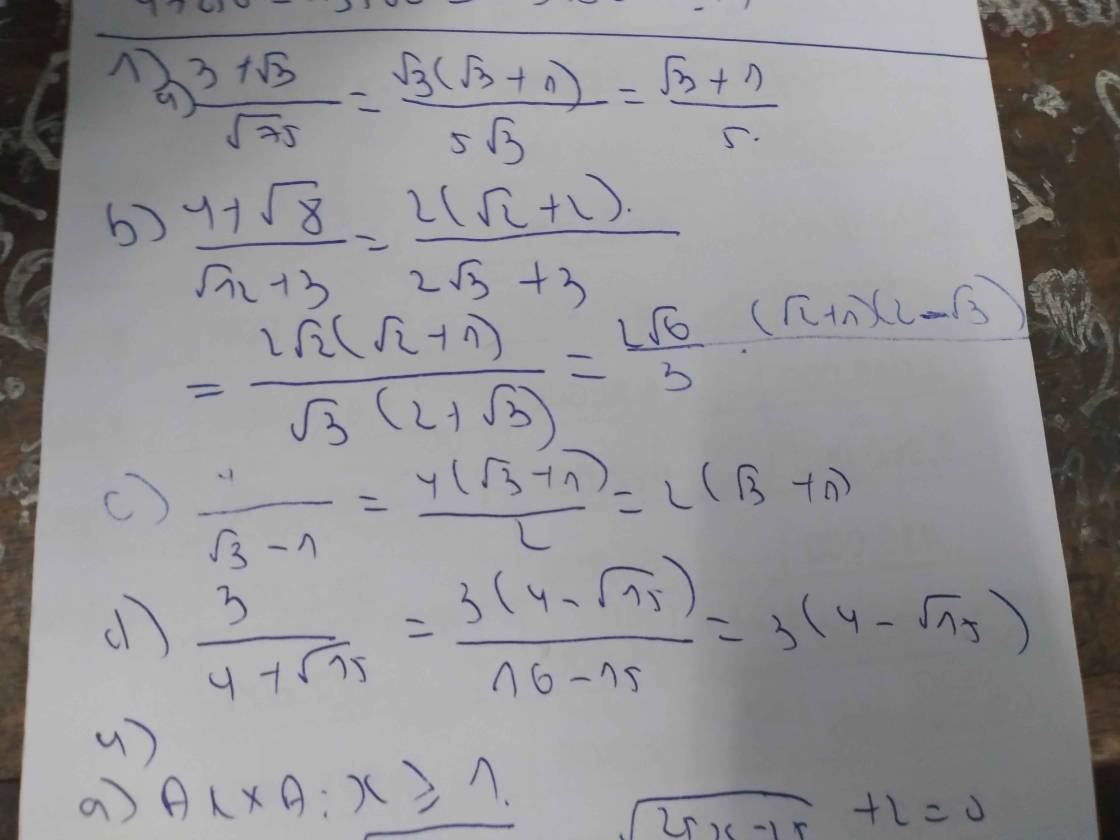 1) a) (3 + √3)/√75 = √3(√3 + 1)/(5√3) = (√3 + 1)/5.
b) (4 + √8)/(√12 + 3) = 2(√2 + 2)./(2√3 + 3)
= 2√2(√2 + 1)/(√3(2 + √3)) = 2√6/3 . (√2 + 1)(2 - √3)
c) 4/(√3 - 1) = 4(√3 + 1)/2 = 2(√3 + 1)
d) 3/(4 + √15) = 3(4 - √15)/(16 - 15) = 3(4 - √15)
4)
a) ĐKXĐ: x ≥ 1. √(25x - 25) + 2 = 0